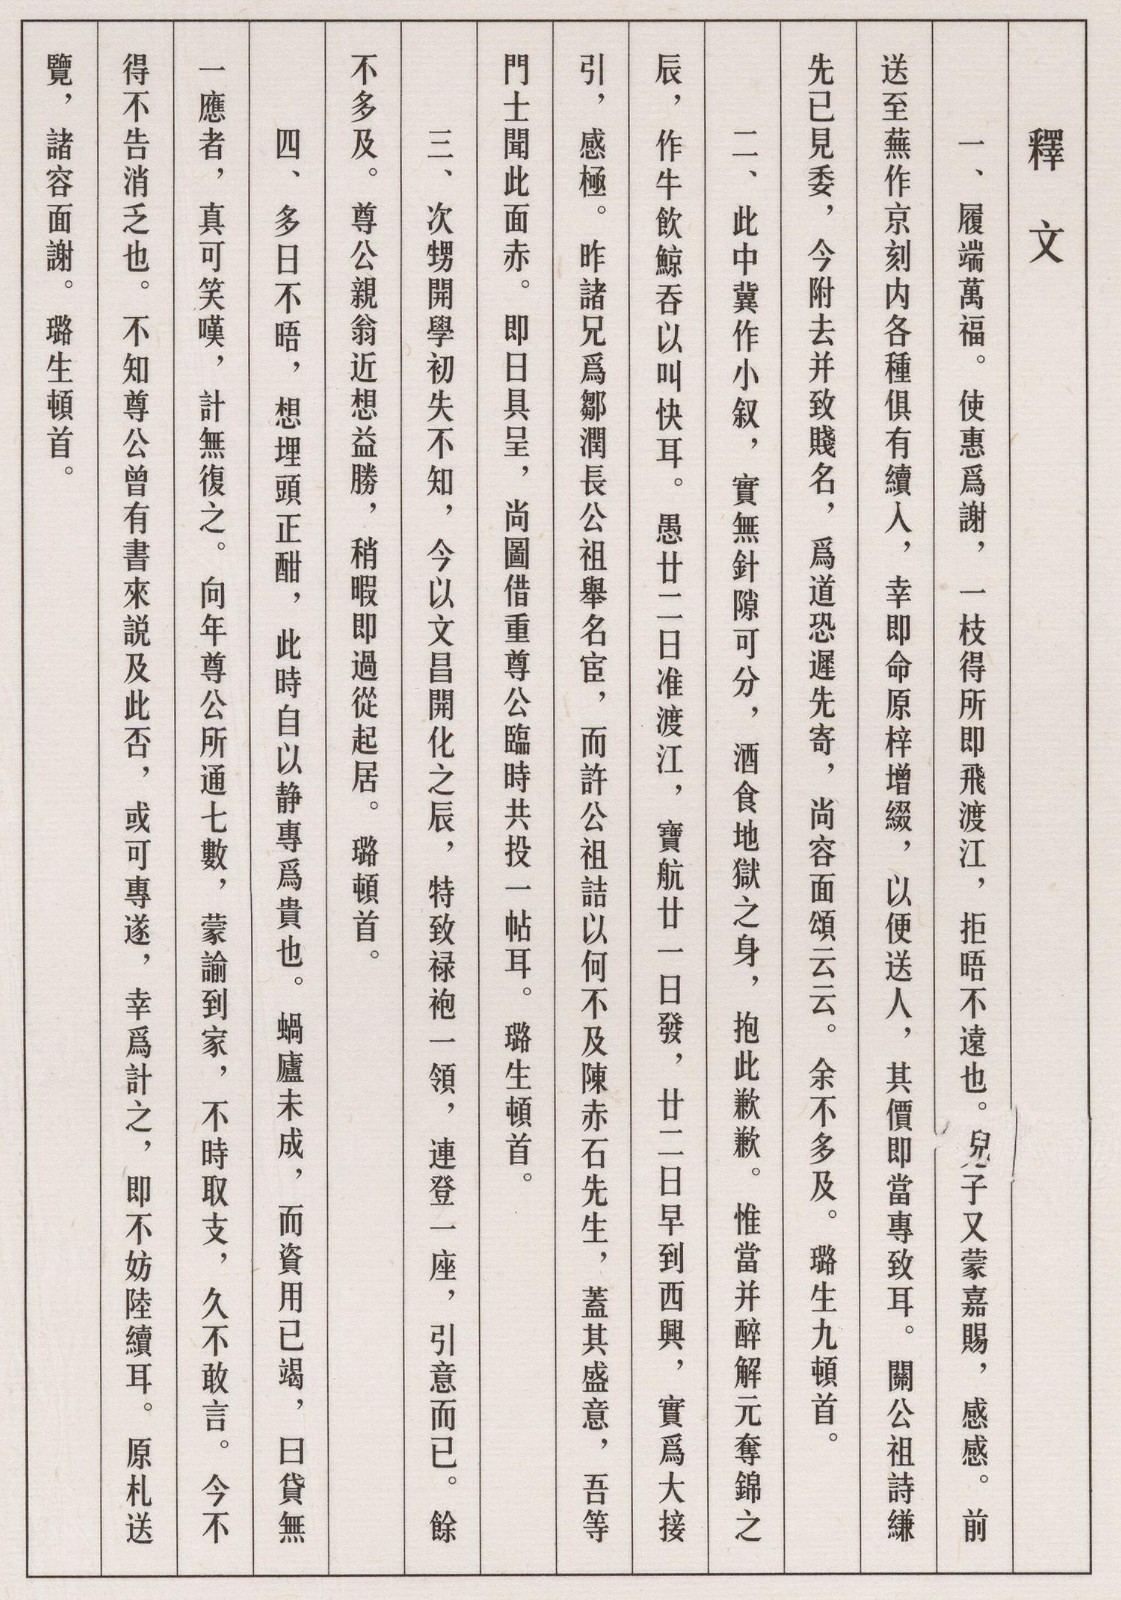 釋文
一、履端萬福。使惠爲謝，一枝得所即飛渡江，拒晤不遠也。兒子又蒙嘉賜，感感。前
送至蕪作京刻内各種俱有續人，幸即命原梓增綴，以便送人，其價即當專致耳。關公祖詩縑
先已見委，今附去并致賤名，爲道恐遲先寄，尚容面頌云云。余不多及。璐生九頓首。
二、此中冀作小叙，實無針隙可分，酒食地獄之身，抱此歉歉。惟當并醉解元奪錦之
辰，作牛飲鯨吞以叫快耳。愚廿二日准渡江，寶航廿一日發，廿二日早到西興，實爲大接
引，感極。昨諸兄爲鄒潤長公祖舉名宦，而許公祖詰以何不及陳赤石先生，蓋其盛意，吾等
門士聞此面赤。即日具呈，尚圖借重尊公臨時共投一帖耳。璐生頓首。
三、次甥開學初失不知，今以文昌開化之辰，特致禄袍一領，連登一座，引意而已。餘
不多及。尊公親翁近想益勝，稍暇即過從起居。璐頓首。
四、多日不晤，想埋頭正酣，此時自以静專爲貴也。蝸廬未成，而資用已竭，曰貸無
一應者，真可笑嘆，計無復之。向年尊公所通七數，蒙諭到家，不時取支，久不敢言。今不
得不告消乏也。不知尊公曾有書來説及此否，或可專遂，幸爲計之，即不妨陸續耳。原札送
覽，諸容面謝。璐生頓首。